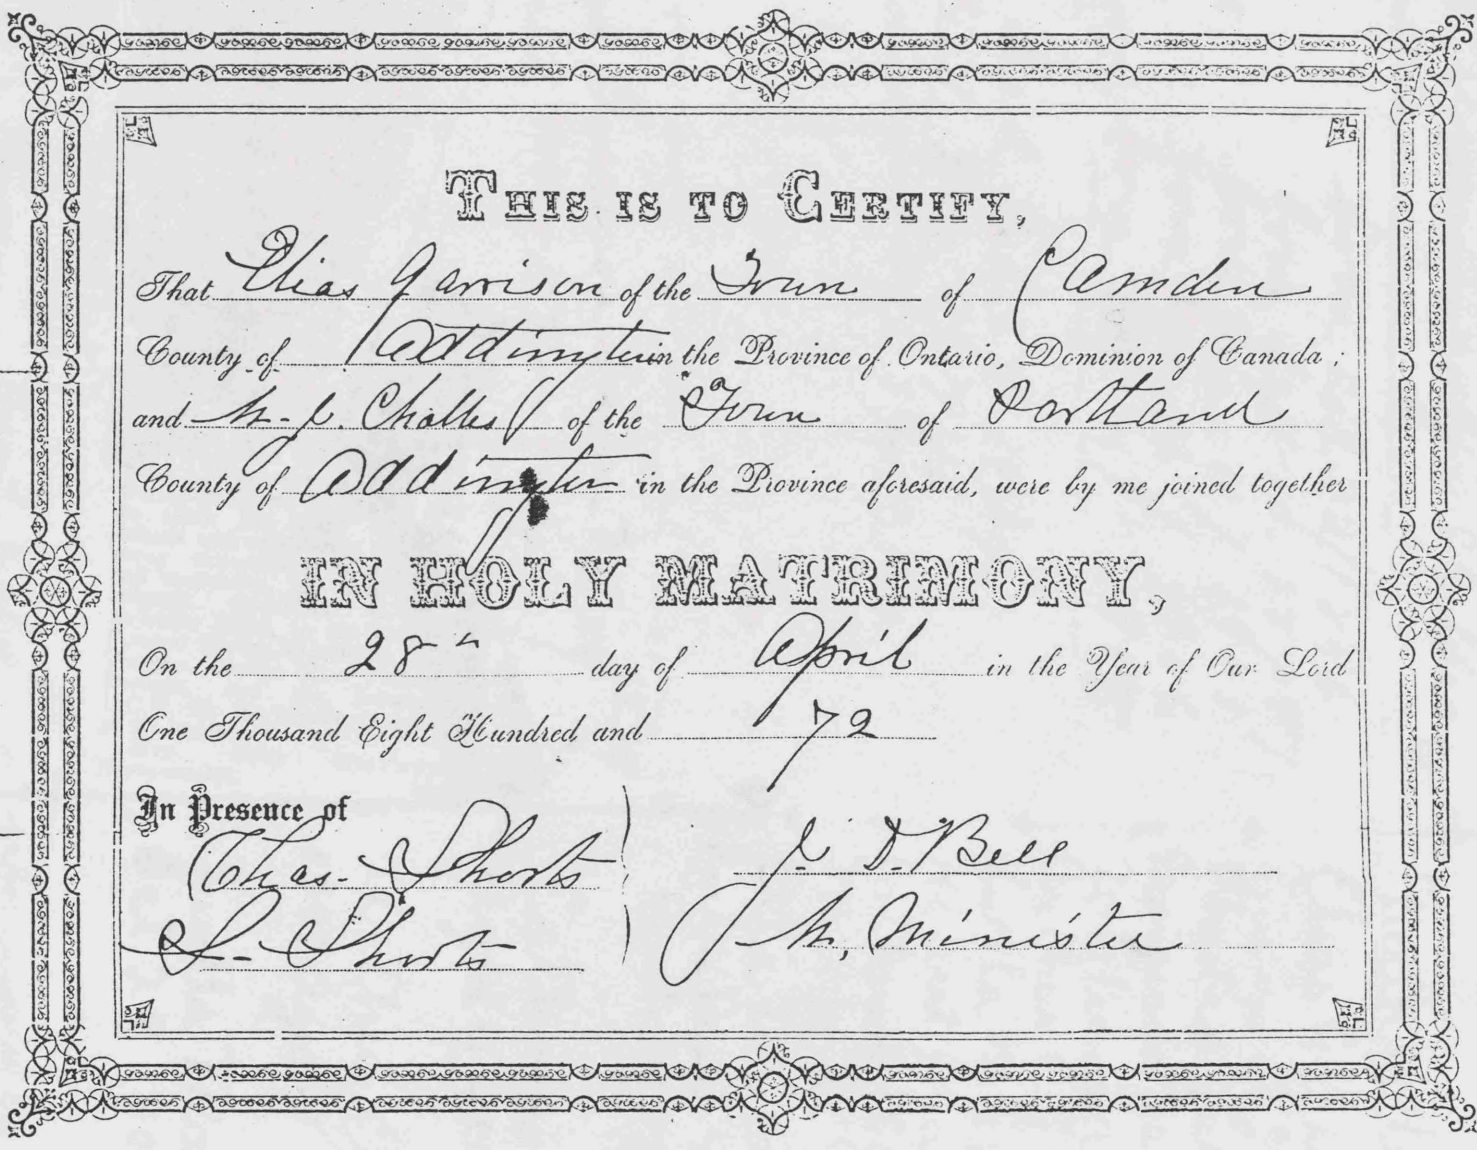 THIS IS TO CERTIFY,
That Elias Garrison of the Town of Camden
County of Addington in the Province of Ontario, Dominion of Canada;
and M. J. of the Town of Portland
County of Addington in the Province aforesaid, were by me joined together
IN HOLY MATRIMONY,
On the 28th day of April in the Year of Our Lord
One Thousand Eight Hundred and 72
In Presence of
Chas. Shorts
S. Shorts
J. D. Bell
M. Minister